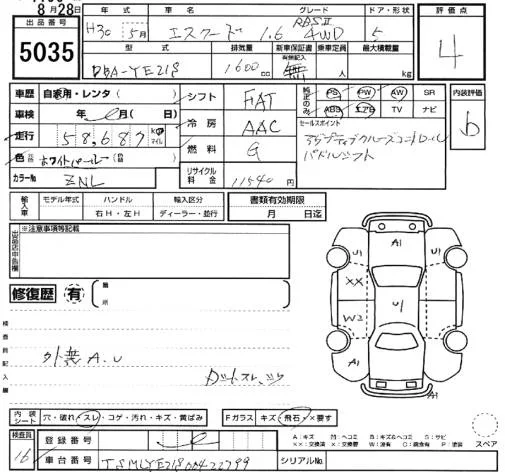 8月28日
出品番号
5035
年式 グレード ドア・形状 評価点
H30 5月 エスクード 1.6 4WD 5
4
型式 排気量 新車保証書 乗車定員 最大積載量
有無記入
DBA-YE21S 1600cc 無 人 kg
車歴 自家用・レンタ( )
シフト FAT
純正のみ PS PW AW SR
ABS エアB TV ナビ
内装評価
b
車検 年 月( 日)
冷房 AAC
セールスポイント
アダプティブクルーズコントロール
パドルシフト
走行 58,687 km マイル
燃料 G
色 元色 ホワイトパール ( 替)
リサイクル料金 11540
カラーNo ZNL
輸入車 モデル年式 ハンドル 輸入区分
右H・左H ディーラー・並行
書類有効期限
月 日迄
出品店申告欄
※注意事項等記載
修復歴 有
箇所
検査員記入欄
外無 A.U
A1
U1 U1
XX U1
W2
A1 A1
内装シート 穴・破れ・スレ・コゲ・汚れ・キズ・黄ばみ
Fガラス キズ・飛石・×要す
A:キズ M:ヘコミ B:キズ&ヘコミ S:サビ
スペア
検査員
16
登録番号
車台番号 TSMLYE21S00422799
シリアルNo.